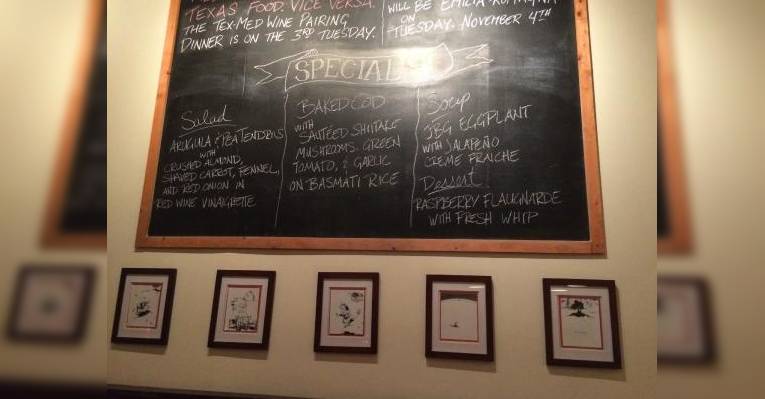 TEXAS FOOD. VICE VERSA.
THE TEX-MED WINE PAIRING
DINNER IS ON THE 3RD TUESDAY.
WILL BE EMILIA-ROMAGNA
ON
TUESDAY. NOVEMBER 4TH
SPECIAL
Salad
ARUGULA & PEA TENDRILS
WITH
CRUSHED ALMOND,
SHAVED CARROT, FENNEL,
AND RED ONION IN
RED WINE VINAIGRETTE
BAKED COD
WITH
SAUTÉED SHIITAKE
MUSHROOMS. GREEN
TOMATO, & GARLIC
ON BASMATI RICE
Soup
JBG EGGPLANT
WITH JALAPEÑO
CREME FRAICHE
Dessert
RASPBERRY FLAUGNARDE
WITH FRESH WHIP